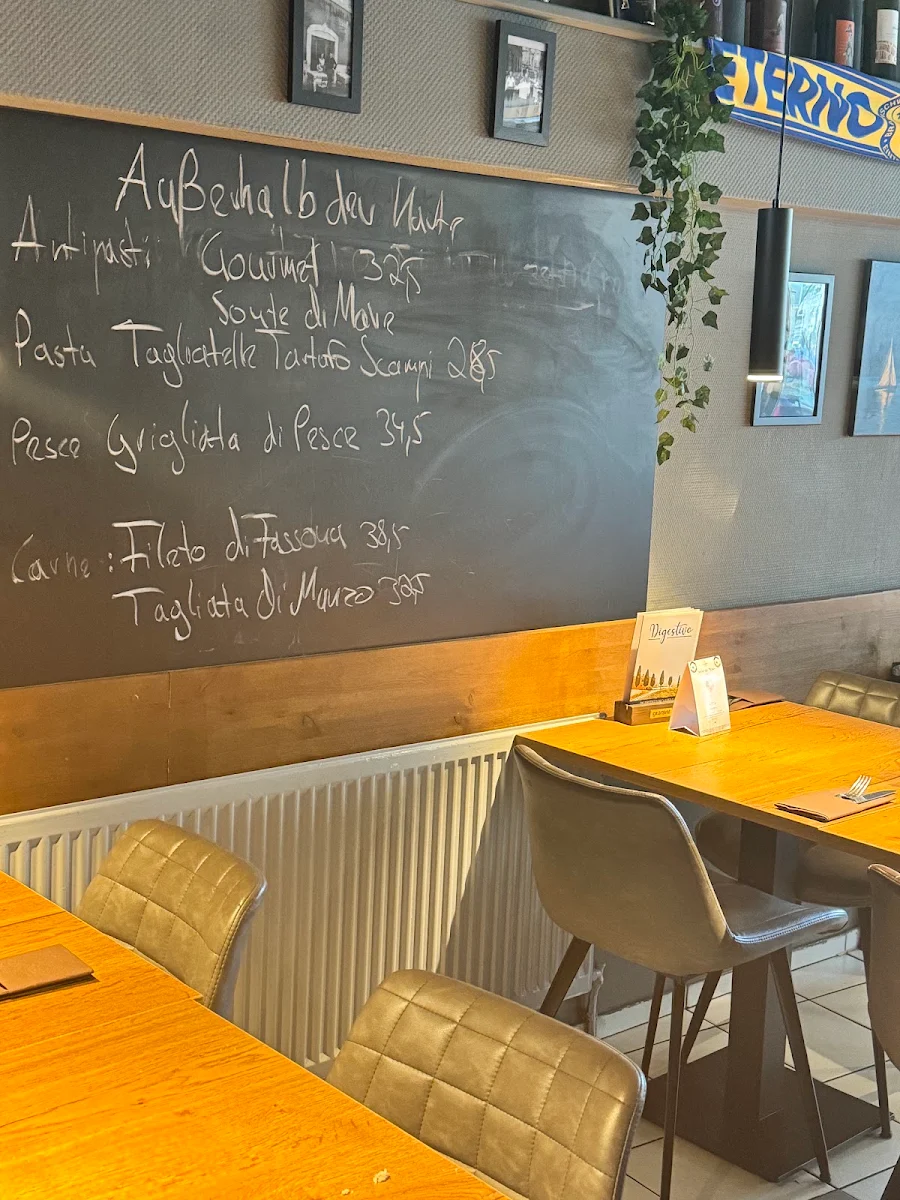 Außerhalb der Karte
Antipasti: Gourmet 32,5
Soute di Mare
Pasta Tagliatelle Tartufo Scampi 28,5
Pesce Grigliata di Pesce 34,5
Carne: Fileto di Fassona 38,5
Tagliata di Manzo 30,5
ETERNO
Digestivo